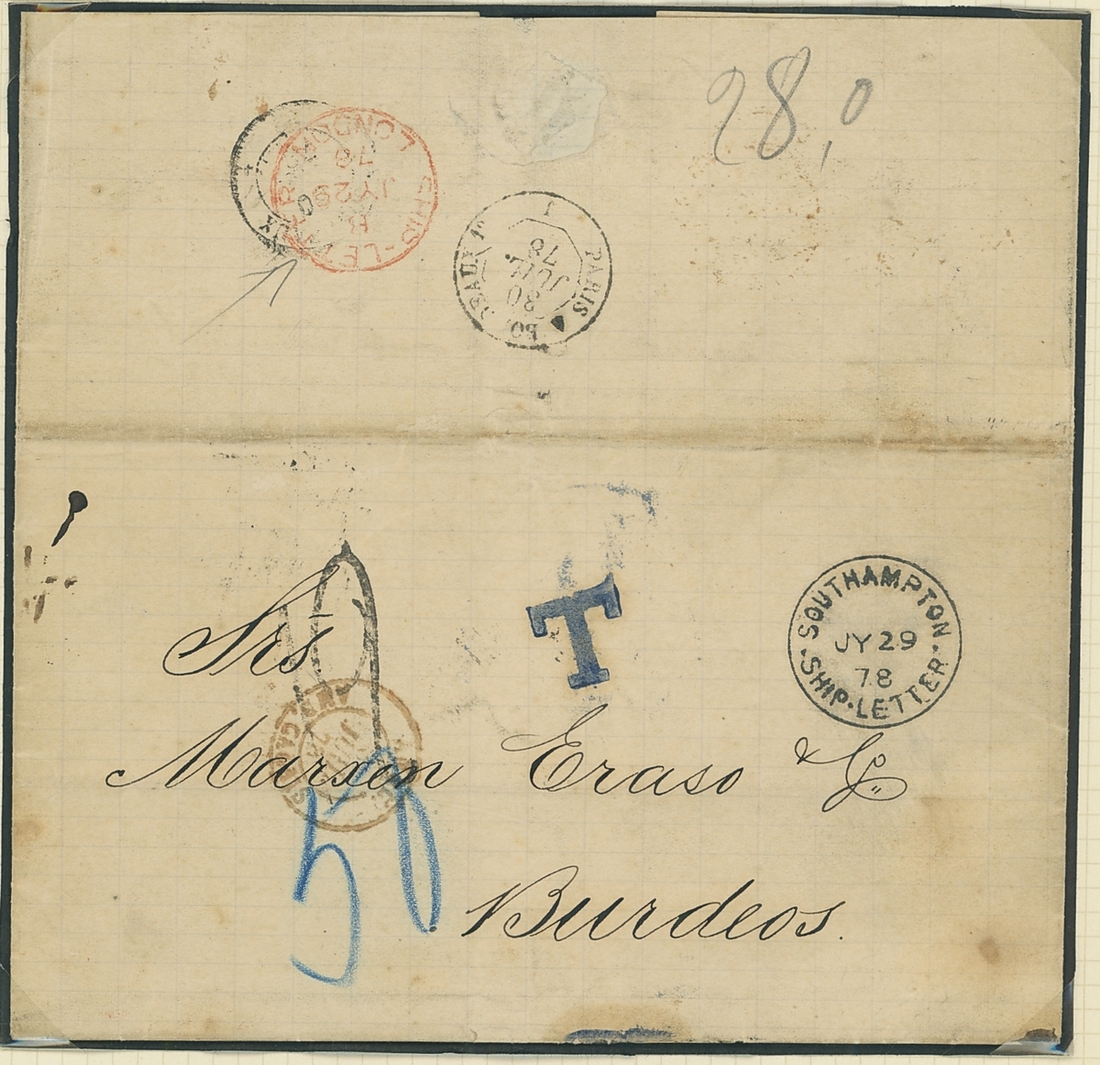 28,0
LONDON
SHIP-LETTER
B
JY 29
78
PARIS
1
30
78
T
SOUTHAMPTON
JY 29
78
SHIP-LETTER
Srs
Marxen Eraso & Co
50
Burdeos.